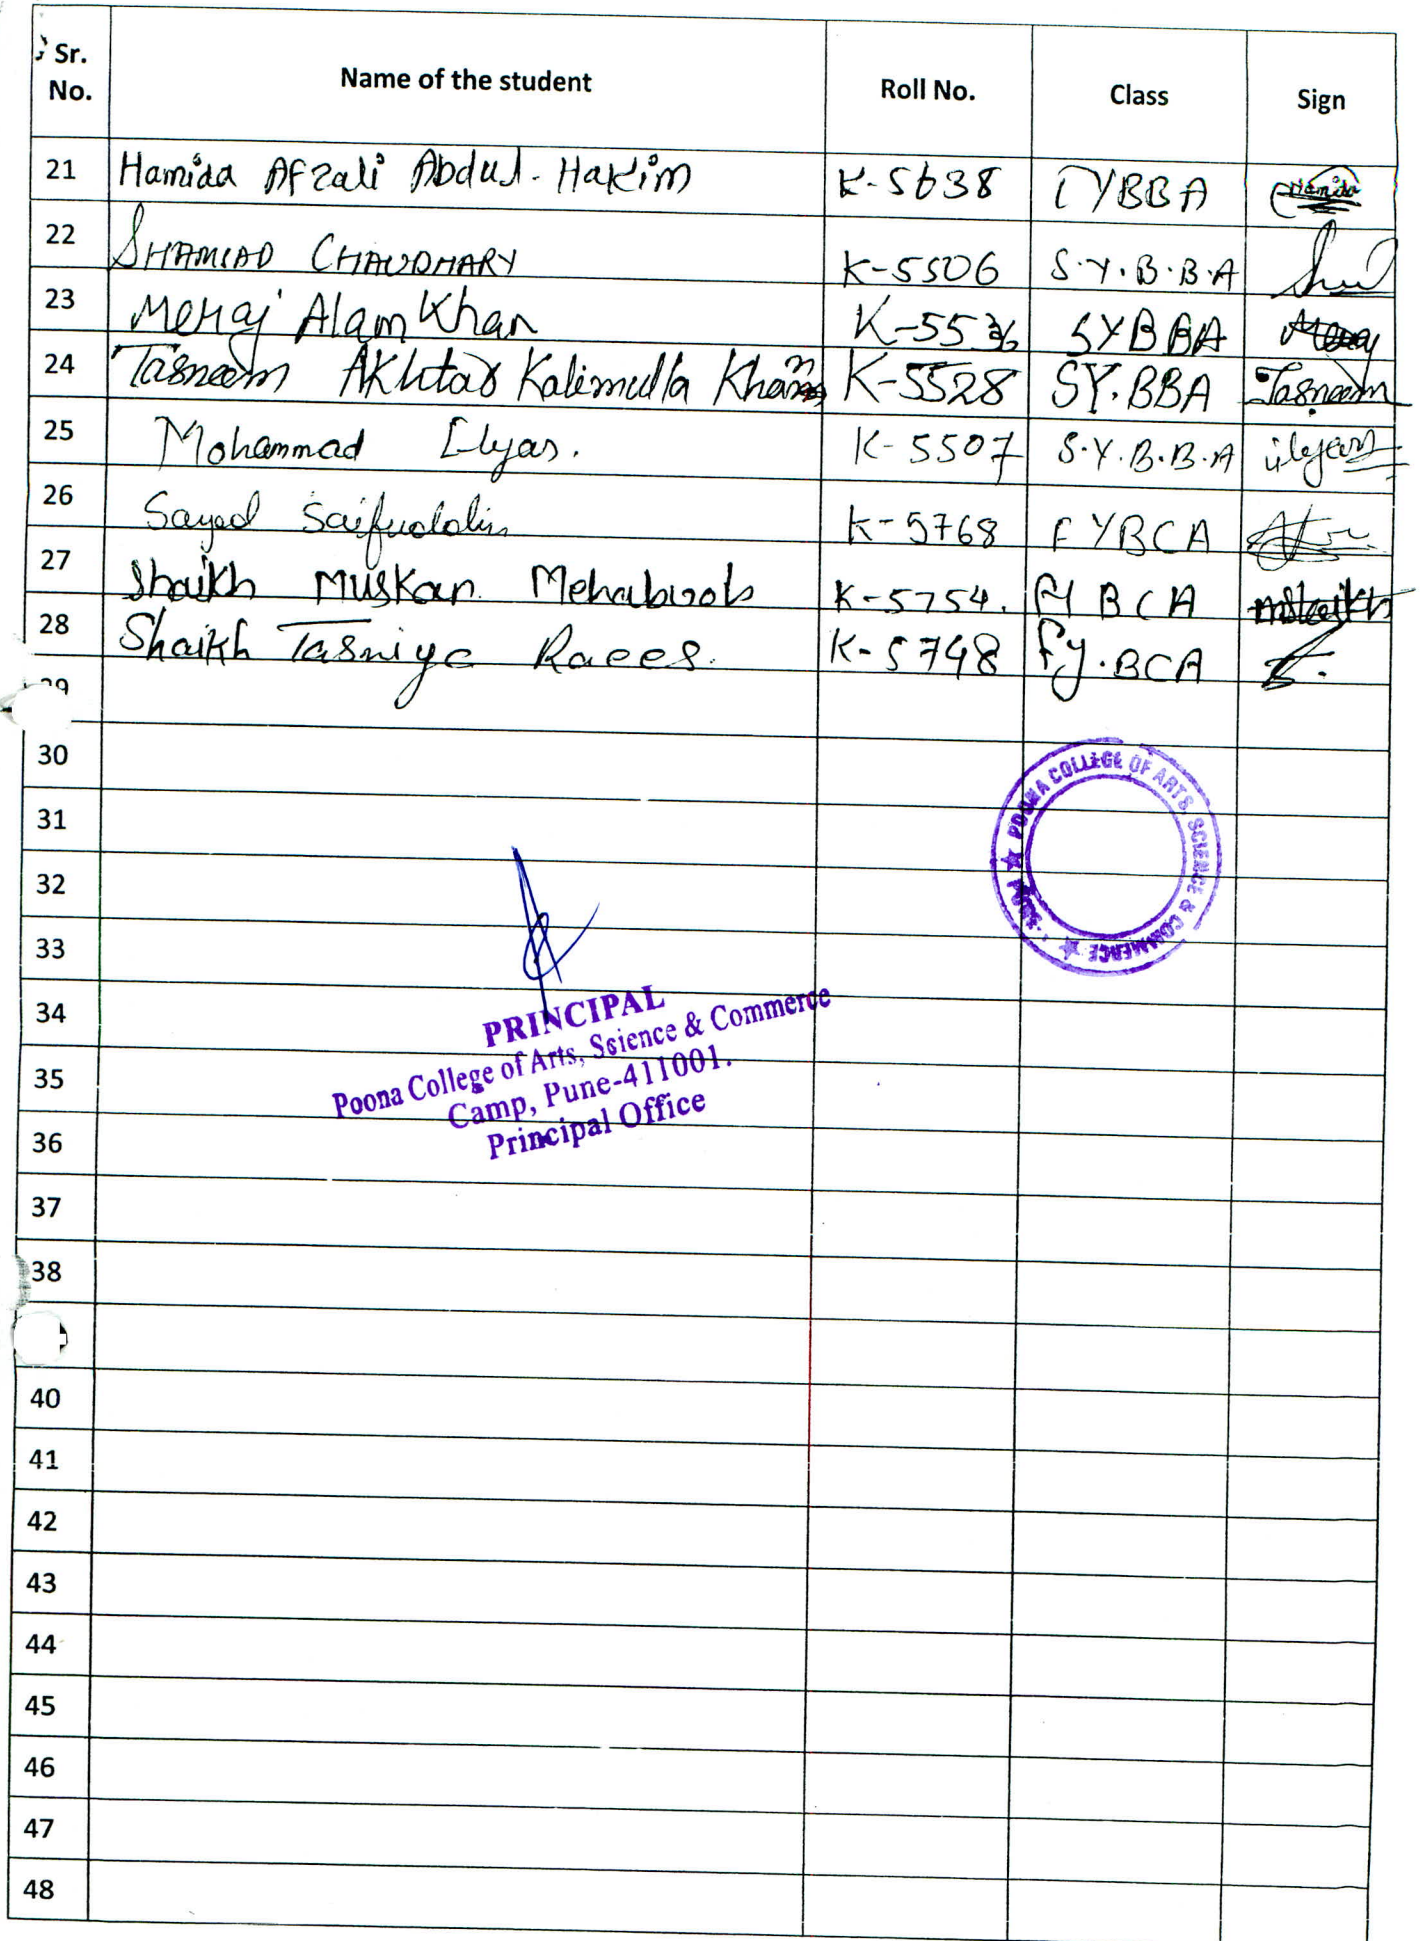 Sr. No. Name of the student Roll No. Class Sign
21 Hamida Afzali Abdul-Hakim K-5638 TYBBA Hamida
22 SHAMSAD CHAUDHARY K-5506 S.Y.B.B.A
23 Meraj Alam Khan K-5536 SYBBA Meraj
24 Tasneem Akhtar Kalimulla Khan K-5528 SY.BBA Tasneem
25 Mohammad Ilyas. K-5507 S.Y.B.B.A ilyas
26 Sayed Saifuddin K-5768 FYBCA
27 Shaikh Muskan Mehaboob K-5754. FY BCA mshaikh
28 Shaikh Tasniye Raees. K-5748 Fy.BCA
29
30
31
32
33
34
35
36
37
38
40
41
42
43
44
45
46
47
48
POONA COLLEGE OF ARTS, SCIENCE & COMMERCE
PRINCIPAL
Poona College of Arts, Science & Commerce
Camp, Pune-411001.
Principal Office